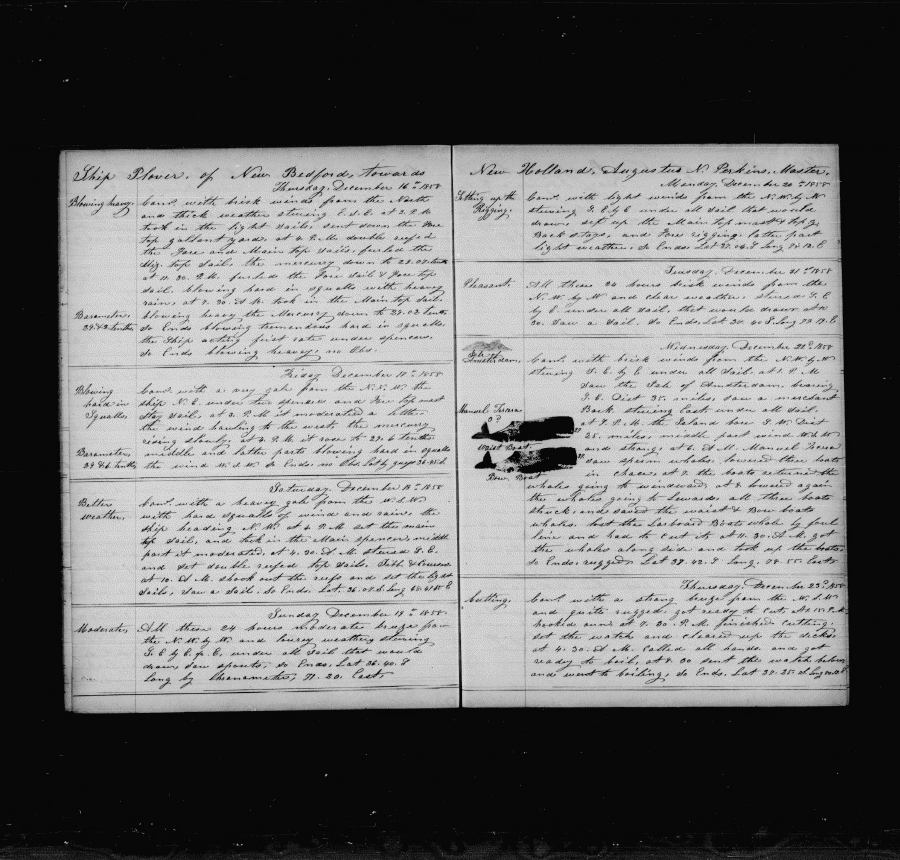 Ship Plover, of New Bedford, towards
Thursday, December 16th 1858
Blowing heavy.
Comd. with brisk winds from the North
and thick weather steering E.S.E. at 2. P.M
took in the light sails, sent down the Fore
top gallant yard, at 4. P.M double reefed
the Fore and Main top sails, furled the
Miz. top sail, the mercury down to
at 11. 30. P.M. furled the Fore sail & Fore top
sail. blowing hard in squalls with heavy
rain, at 7. 30. A.M. took in the Main top sail.
Barometer,
blowing heavy the Mercury down to 29.02 tenths
So Ends blowing tremendous hard in squalls
the Ship acting first rate under spencers.
So Ends blowing heavy; no Obs.
Friday December 17th 1858
Blowing
hard in
Squalls
Comd. with a very gale from the N.N.W. the
ship N.E. under the spencer and Fore top mast
Stay sail, at 2. P.M it moderated a little
the wind hauling to the west, the mercury
rising slowly, at 4. P.M it rose to 29.6 tenths
Barometer,
29.46 tenths,
middle and latter parts blowing hard in squalls
the wind W.S.W. So Ends, no Obs. Lat by
Saturday, December 18th 1858.
Better
weather,
Comd. with a heavy gale from the W.S.W
with hard squalls of wind and rain, the
ship heading N.W. at 4. P.M set the main
top sail, and took in the Main spencer, middle
part it moderated. at 4. 30. A.M steered S.E.
and set double reefed top sails, Jibb & Courses
at 10. A.M. shook out the reefs and set the light
sails, saw a sail. So Ends. Lat. 36.07.S Long
Sunday December 19th 1858.
Moderate,
All these 24 hours moderate breeze from
the N.W. by W. and weather, steering
S.E by E. & E. under all sail that would
draw, saw spouts, So Ends, Lat 36.40.S
Long by Chronometer, 71. 20. East
New Holland, Augustus N. Perkins, Master,
Monday, December 20th 1858
Setting up the
Rigging,
Comd. with light winds from the N.W. by W
steering S.E by E under all sail that would
draw, set up the Main top mast & top g.
Back stays, and Fore rigging, latter part
light weather, So Ends. Lat 37.04.S Long
Tuesday December 21st 1858
Pleasant.
All these 24 hours brisk winds from the
N.W. by W and clear weather, steered S.E
by E. under all sail, that would draw, at
30. Saw a sail. So Ends. Lat
Wednesday, December 22d 1858
Isle
Amsterdam,
Comd. with brisk winds from the N.W. by W
steering S.E. by E under all sail. at 1. P.M
saw the Isle of Amsterdam, bearing
S.E. Dist 35. miles, saw a merchant
Bark steering East under all sail.
Manuel
at 7. P.M. the Island bore S.W. Dist
25. miles, middle part wind W.N.W
and strong, at 6. A.M. Manuel
saw sperm whale, lowered three boats
Waist Boat
in chace, at 7. the boats returned the
Bow Boat
whales going to windward, at 8 lowered again
the whales going to leeward, all three boats
struck, and saved the waist & Bow boats
whales. lost the Larboard Boats whale by foul
line and had to cut it, at 11. 30. A.M. got
the whales along side and took up the boats,
So Ends, rugged Lat 37.42.S Long. 78.55. East
Thursday, December 23d 1858
Cutting,
Comd. with a strong breeze from the W.S.W
and quite rugged, got ready to cut. At 1. 15. P.M.
hooked on at 7. 30. P.M. finished cutting.
set the watch and cleared up the decks,
at 4. 30. A.M. Called all hands and got
ready to boil, at 8. 30 sent the watch below
and went to boiling, So Ends. Lat